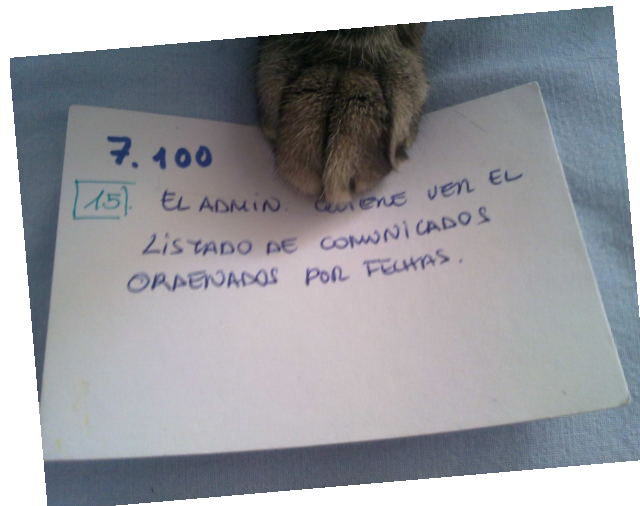 7.100
15. EL ADMIN. QUIERE VER EL
LISTADO DE COMUNICADOS
ORDENADOS POR FECHAS.